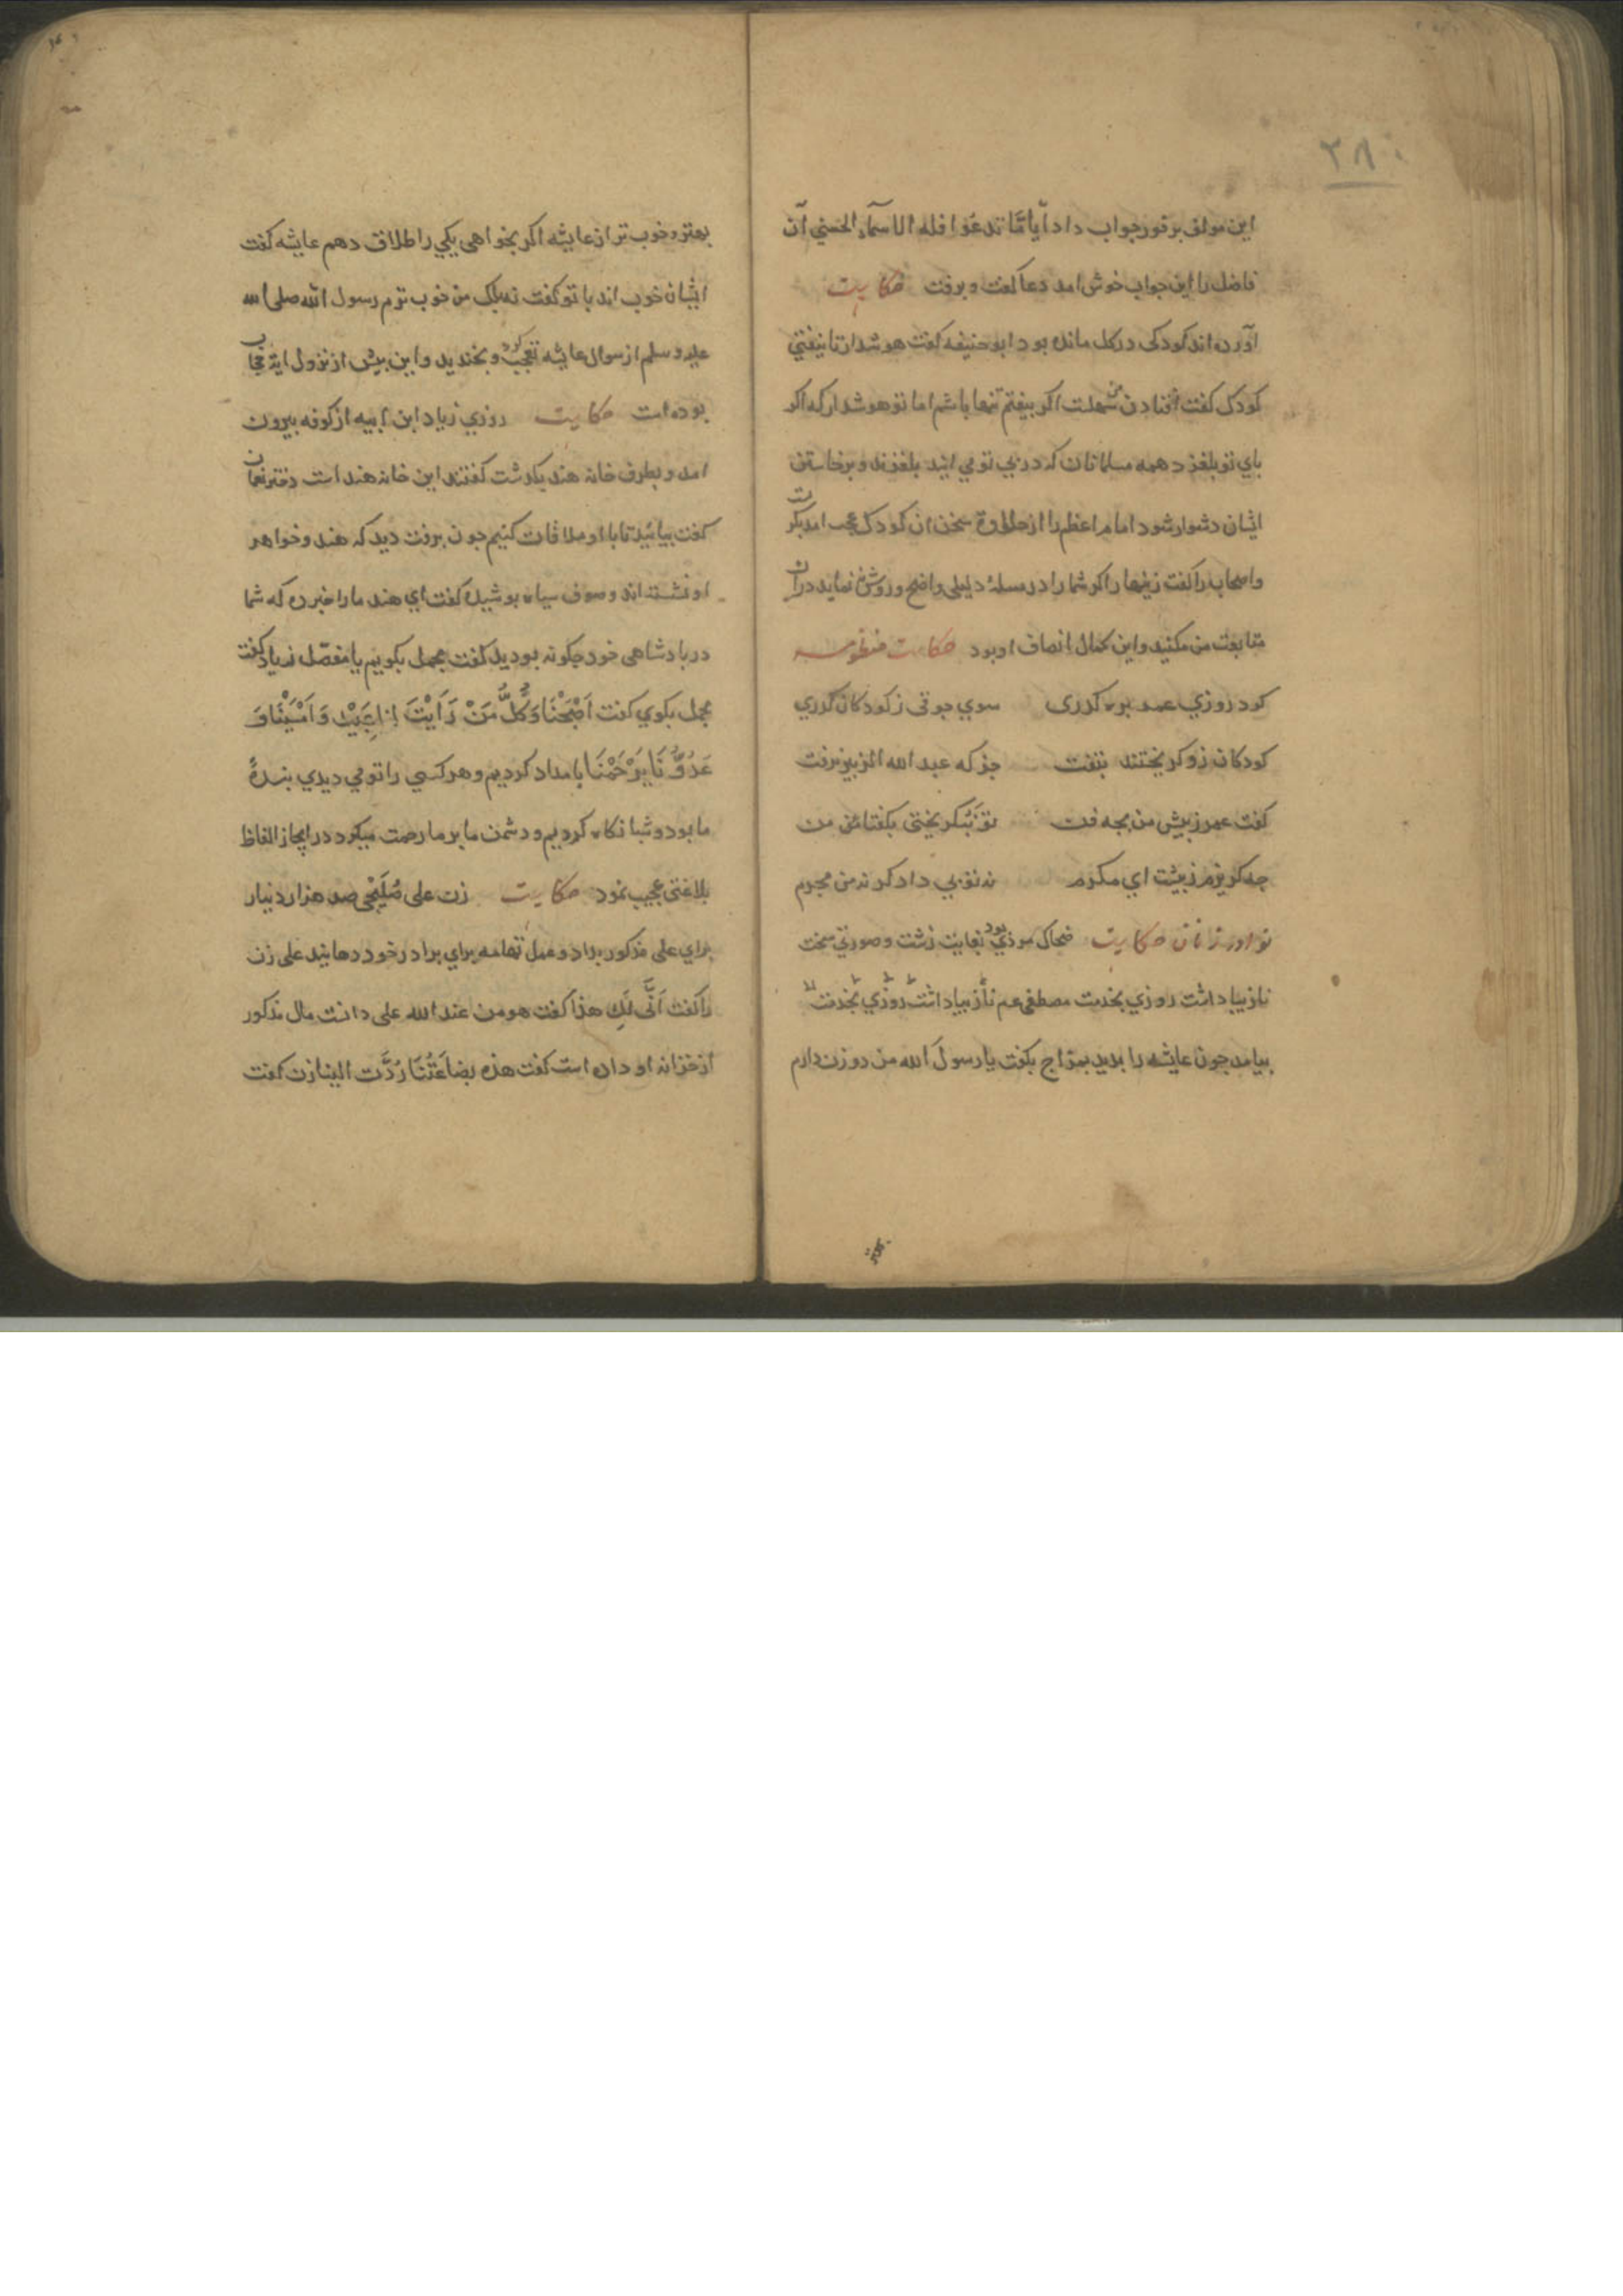 ۲۸۰
این مولف بر فور جواب داد أیاما تدعوا فله الاسمآء الحسنی آن
فاضل را این جواب خوش امد دعا گفت و برفت حکایت
آورده اند کودکی در کل مانده بود ابو حنیفه کفت هوشدار تا نیفتی
کودک کفت افتادن من سهلست اکر بیفتم تنها باشم اما تو هوشدار که اکر
بای تو بلغزد همه مسلمانان که در پی تو می ایند بلغزند و برخاستن
ایشان دشوار شود امام اعظم را از حلاوة سخن ان کودک عجب امد بکریست
و اصحاب را کفت زینهار اکر شما را در مسلهٔ دلیلی واضح و روشن نماید دران
متابعت من مکنید و این کمال انصاف او بود حکایت منظومه
کرد روزی عمر بره کذری سوی جوقی ز کودکان کذری
کودکان زو کریختند بتفت جز که عبد الله الزبیر نرفت
کفت عمر ز پیش من بجه فن تو نکریختی بکفتا من
چه کریزم ز پیشت ای مکرم نه تو بی دادکر نه من مجرم
نوادر زنان حکایت ضحاک موذی بود بغایت زشت و صورتی سخت
نازیبا داشت روزی بخدمت مصطفی عم نازیبا داشت روزی بخدمت
بیامد جون عایشه را بدید بمزاج بکفت یا رسول الله من دو زن دارم
بهتر
بهتر و خوب تر از عایشه اکر بخواهی یکی را طلاق دهم عایشه کفت
ایشان خوب اند یا تو کفت نه بلک من خوب ترم رسول الله صلی الله
علیه و سلم از سوال عایشه تعجب کرد و بخندید و این پیش از نزول ایة حجاب
بوده است حکایت روزی زیاد ابن ابیه از کوفه بیرون
امد و بطرف خانه هند بکذشت کفتند این خانه هند است دختر نعمان
کفت بیائید تا با او ملاقات کنیم جون برفت دید که هند و خواهر
او نشسته اند و صوف سیاه پوشیده کفت ای هند ما را خبر ده که شما
در پادشاهی خود جکونه بودید کفت مجمل بکویم یا مفصّل زیاد کفت
مجمل بکوی کفت اَصْبَحْنَا وَ کُلُّ مَنْ رَاَیْتَ لنا عَبِیْد وَ اَمْسَیْنَا وَ
عَدُوُّنَا یَرْحَمُنَا بامداد کردیم و هر کسی را تو می دیدی بندهٔ
ما بود و شبانکاه کردیم و دشمن ما بر ما رحمت میکرد در ایجاز الفاظ
بلاغتی عجیب نمود حکایت زن علی صُلَیْحی صد هزار دینار
برای علی مذکور بداد و عمل تهامه برای برادر خود دهانید علی زن
را کفت اَنَّی لَكِ هذا کفت هو من عند الله علی دانست مال مذکور
از خزانه او داده است کفت هذه بضاعَتُنَا رُدَّت الینا زن کفت